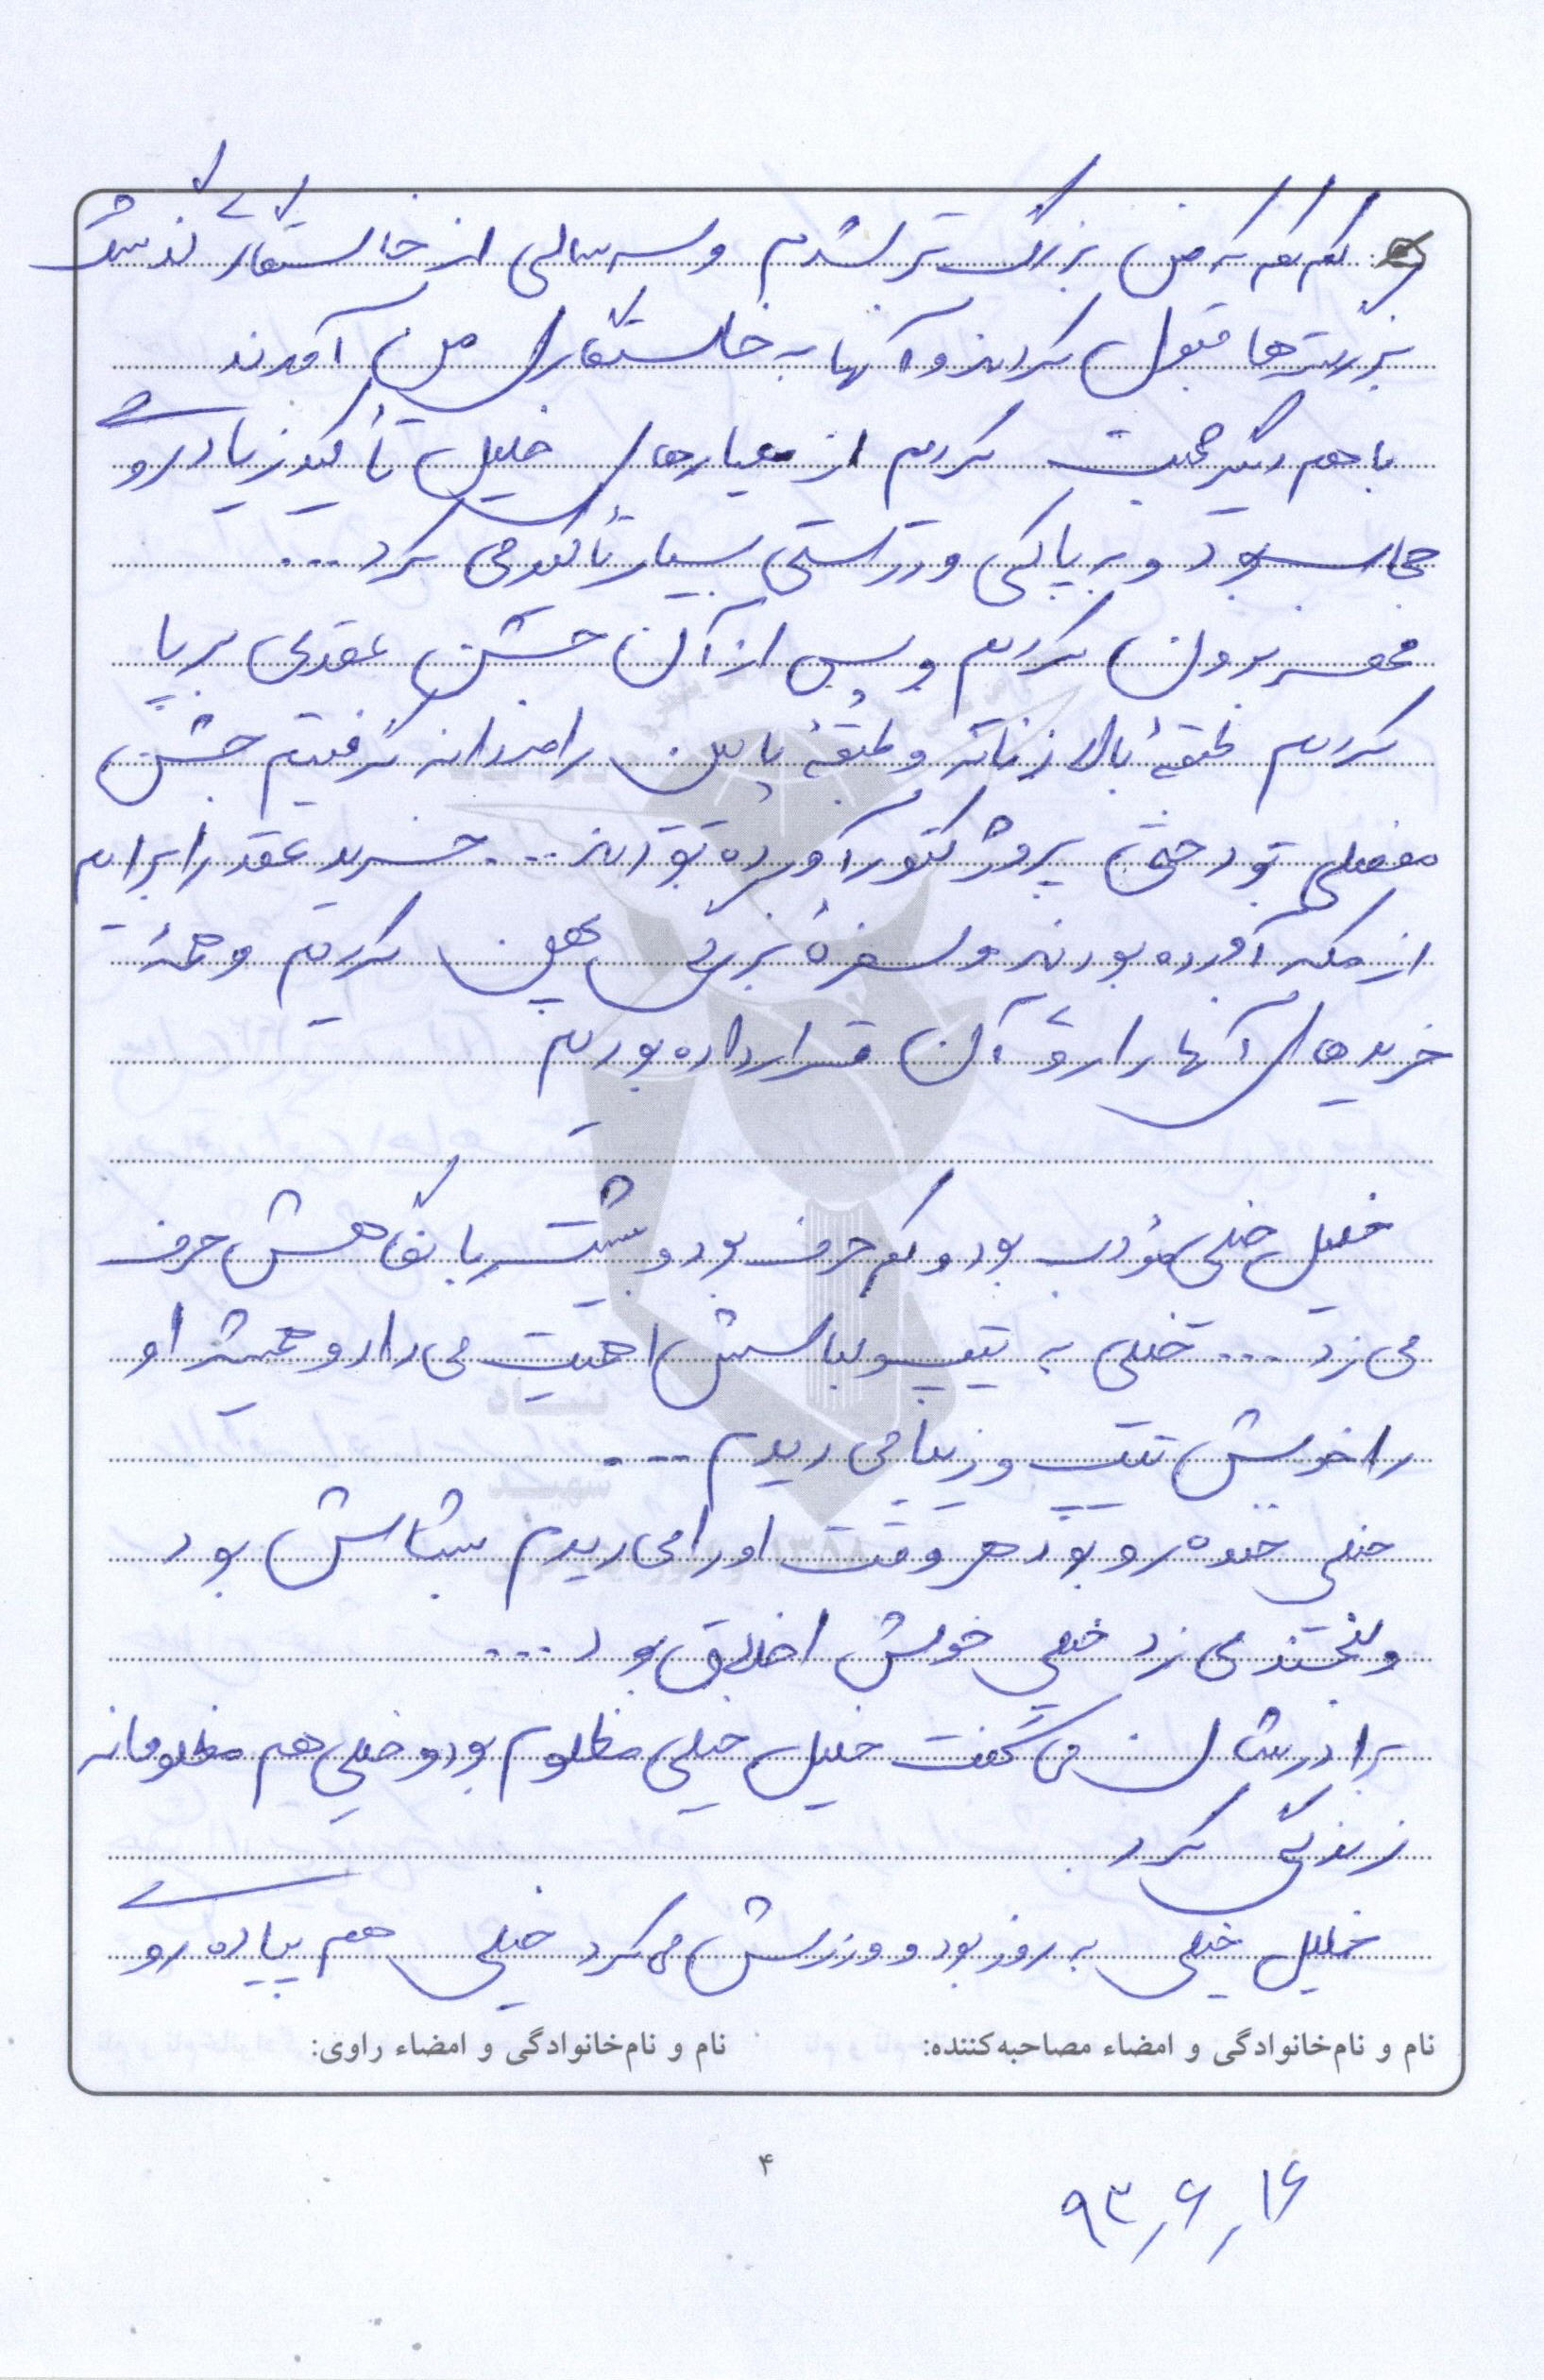 کم کم که من بزرگ تر شدم و سه سالی از خاستگاری گذشت
بزرگترها قبول کردند و آنها به خاستگاری من آمدند
با هم دیگر صحبت کردیم از معیارهای خلیل تأکید زیاد روی
حجاب بود و بر پاکی و درستی بسیار تأکید می کرد ...
محضر بروان کردیم و پس از آن جشن عقدی برپا
کردیم طبقهٔ بالا زنانه و طبقهٔ پایین را مردانه گرفتیم جشن
مفصلی بود حتی پروژکتور آورده بودند ... خرید عقد را برایم
از مکه آورده بودند و سفرهٔ بزرگی پهن کردیم و همهٔ
خریدهای آنها را روی آن قرار داده بودیم
خلیل خیلی مؤدب بود و کم حرف بود و بیشتر با نگاهش حرف
می زد ... خیلی به تیپ و لباسش اهمیت می داد و همیشه او
را خوش تیپ و زیبا می دیدم ...
خیلی خنده رو بود هر وقت او را می دیدم بشاش بود
و لبخند می زد خیلی خوش اخلاق بود ...
برادرشان می گفت خلیل خیلی مظلوم بود و خیلی هم مظلومانه
زندگی کرد
خلیل خیلی به روز بود و ورزش می کرد خیلی هم پیاده روی
نام و نام‌خانوادگی و امضاء مصاحبه‌کننده: نام و نام‌خانوادگی و امضاء راوی:
۴
۹۳,۶,۱۶